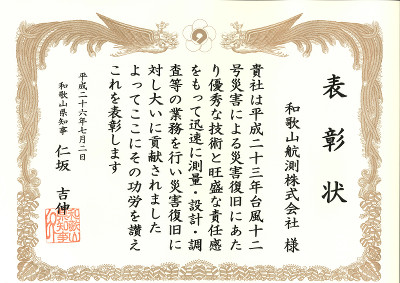 表彰状
和歌山航測株式会社 様
貴社は平成二十三年台風十二
号災害による災害復旧にあた
り優秀な技術と旺盛な責任感
をもって迅速に測量・設計・調
査等の業務を行い災害復旧に
対し大いに貢献されました
よってここにその功労を讃え
これを表彰します
平成二十六年七月二日
和歌山県知事 仁坂 吉伸